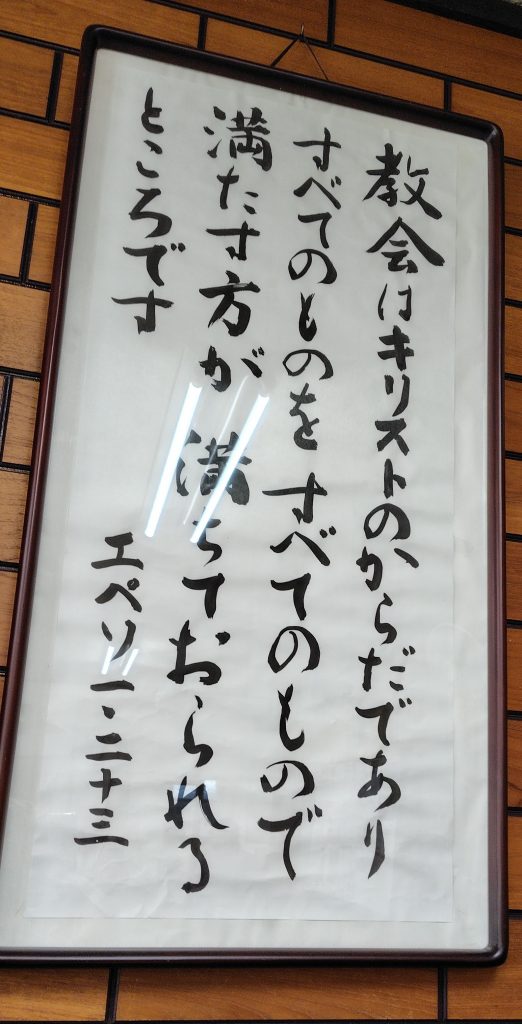 教会はキリストのからだであり
すべてのものをすべてのもので
満たす方が満ちておられる
ところです
エペソ一・二十三